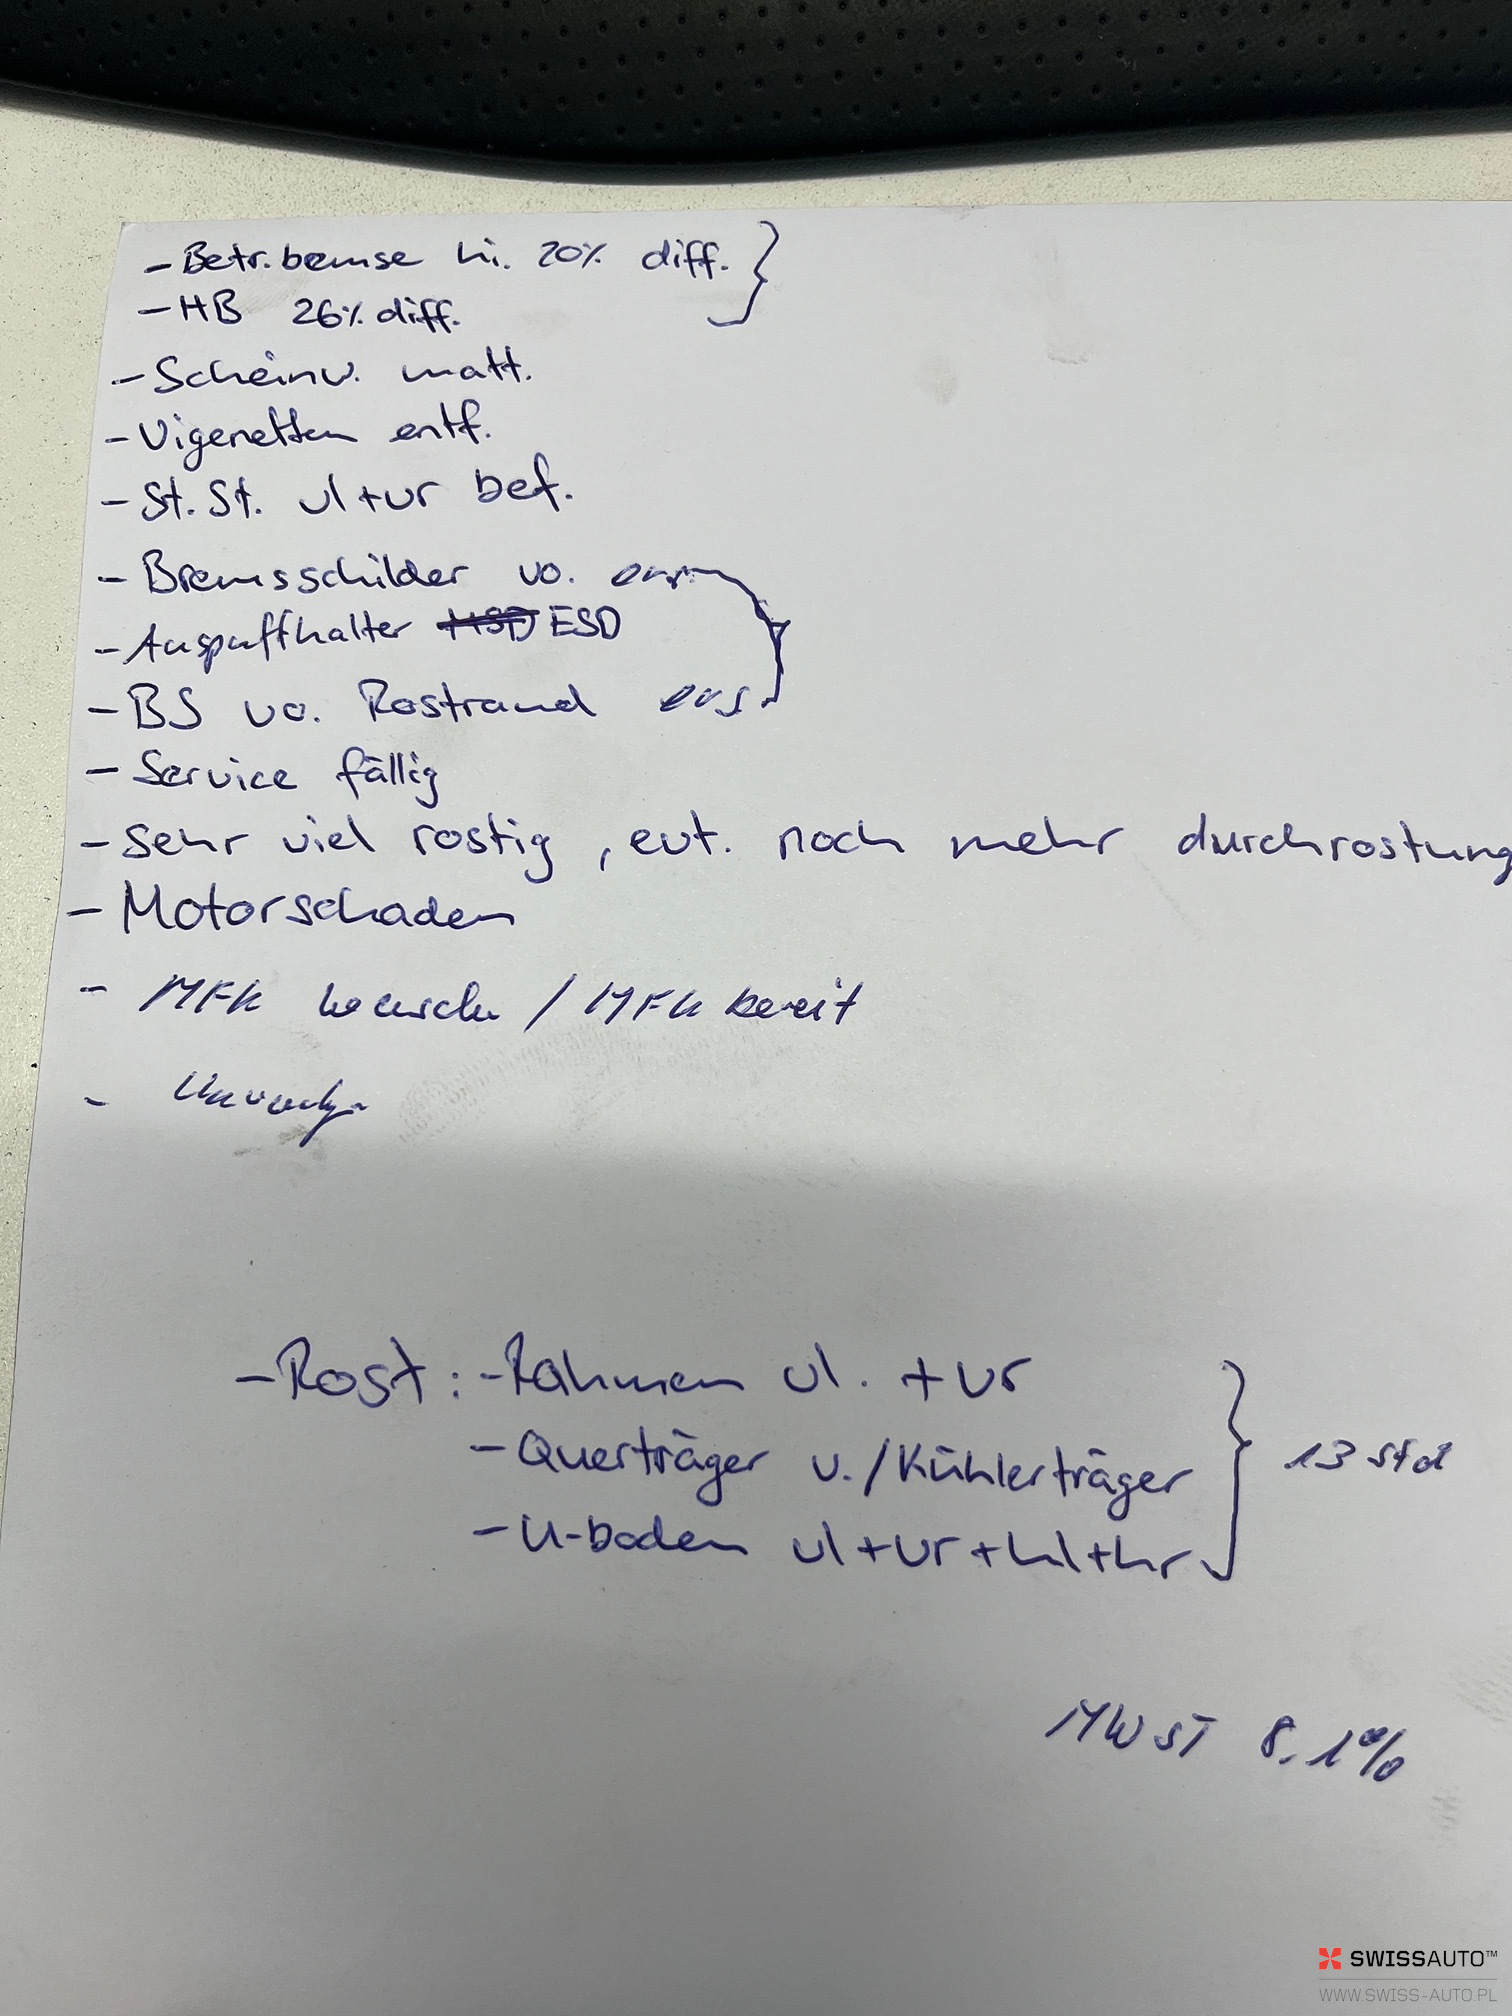 - Betr.bemse hi. 20% diff.
- HB 26% diff.
- Scheinw. matt.
- Vigenetten entf.
- St.St. vl+vr bef.
- Bremsschilder vo.
- Auspuffhalter ESD
- BS vo. Rostrand
- Service fällig
- sehr viel rostig, evt. noch mehr durchrostung
- Motorschaden
- MFK / MFK bereit
- Rost: - Rahmen vl. + vr
- Querträger v./Kühlerträger
- U-boden vl+vr+hl+hr
13 std
MWST 8.1%
SWISSAUTO™
WWW.SWISS-AUTO.PL